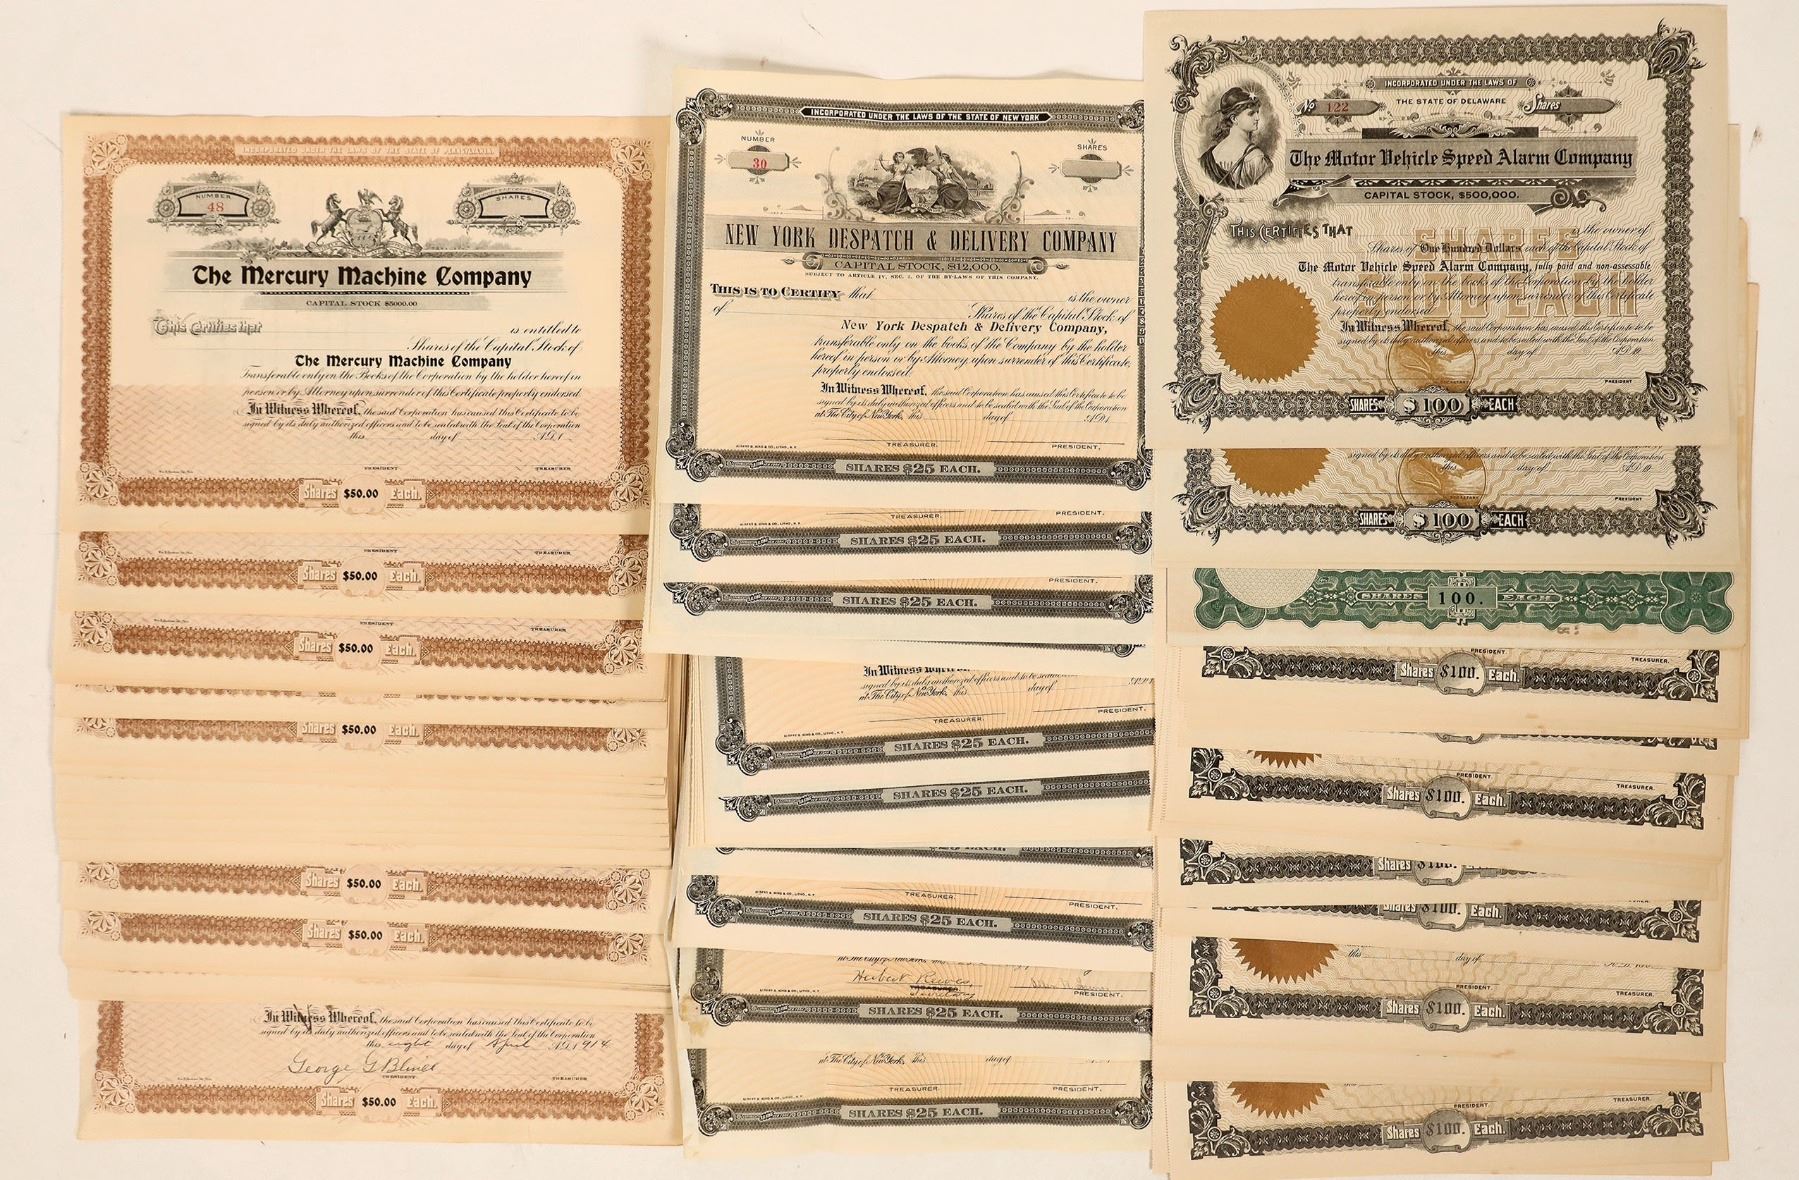 INCORPORATED UNDER THE LAWS OF THE STATE OF PENNSYLVANIA
NUMBER
48
SHARES
The Mercury Machine Company
CAPITAL STOCK $5000.00
This Certifies that
is entitled to
Shares of the Capital Stock of
The Mercury Machine Company
Transferable only on the Books of the Corporation by the holder hereof in
person or by Attorney upon surrender of this Certificate properly endorsed.
In Witness Whereof, the said Corporation has caused this Certificate to be
signed by its duly authorized officers and to be sealed with the Seal of the Corporation
this day of A.D. 1
PRESIDENT TREASURER
Shares $50.00 Each.
PRESIDENT TREASURER
Shares $50.00 Each.
PRESIDENT TREASURER
Shares $50.00 Each.
Shares $50.00 Each.
Shares $50.00 Each.
Shares $50.00 Each.
In Witness Whereof, the said Corporation has caused this Certificate to be
signed by its duly authorized officers and to be sealed with the Seal of the Corporation
this eight day of April A.D. 1914
George G
PRESIDENT TREASURER
Shares $50.00 Each.
INCORPORATED UNDER THE LAWS OF THE STATE OF NEW YORK
NUMBER
30
SHARES
NEW YORK DESPATCH & DELIVERY COMPANY
CAPITAL STOCK, $12,000.
SUBJECT TO ARTICLE IV, SEC. 2. OF THE BY-LAWS OF THIS COMPANY.
THIS IS TO CERTIFY that
is the owner
of Shares of the Capital Stock of
New York Despatch & Delivery Company,
transferable only on the books of the Company by the holder
hereof in person or by Attorney, upon surrender of this Certificate,
properly endorsed.
In Witness Whereof, the said Corporation has caused this Certificate to be
signed by its duly authorized officers and to be sealed with the Seal of the Corporation
at The City of New York, this day of A.D. 1
ALBERT B. KING & CO., LITHO., N.Y.
TREASURER. PRESIDENT.
SHARES $25 EACH.
TREASURER. PRESIDENT.
ALBERT B. KING & CO., LITHO., N.Y.
SHARES $25 EACH.
PRESIDENT.
SHARES $25 EACH.
In Witness Whereof
signed by its duly authorized officers and to be sealed
at The City of New York, this day of A.D. 1
TREASURER. PRESIDENT.
SHARES $25 EACH.
SHARES $25 EACH.
ALBERT B. KING & CO., LITHO., N.Y.
TREASURER. PRESIDENT.
SHARES $25 EACH.
Herbert Reeves
TREASURER.
Secretary
PRESIDENT.
SHARES $25 EACH.
at The City of New York, this day of
TREASURER. PRESIDENT.
ALBERT B. KING & CO., LITHO., N.Y.
SHARES $25 EACH.
INCORPORATED UNDER THE LAWS OF
THE STATE OF DELAWARE
No 122
Shares
The Motor Vehicle Speed Alarm Company
CAPITAL STOCK, $500,000.
THIS CERTIFIES THAT
is the owner of
Shares of One Hundred Dollars each of the Capital Stock of
The Motor Vehicle Speed Alarm Company, fully paid and non-assessable
transferable only on the books of the Corporation by the holder
hereof in person or by Attorney, upon surrender of this Certificate
properly endorsed
SHARES
$100 EACH
In Witness Whereof, the said Corporation has caused this Certificate to be
signed by its duly authorized officers and to be sealed with the Seal of the Corporation
this day of A.D. 19
SECRETARY PRESIDENT
SHARES $100 EACH
signed by its duly authorized officers and to be sealed with the Seal of the Corporation
this day of A.D. 19
SECRETARY PRESIDENT
SHARES $100 EACH
SHARES 100. EACH
PRESIDENT. TREASURER.
Shares $100. Each.
PRESIDENT. TREASURER.
Shares $100. Each.
Shares $100.
Shares $100. Each.
this day of
PRESIDENT. TREASURER.
Shares $100. Each.
PRESIDENT. TREASURER.
Shares $100. Each.